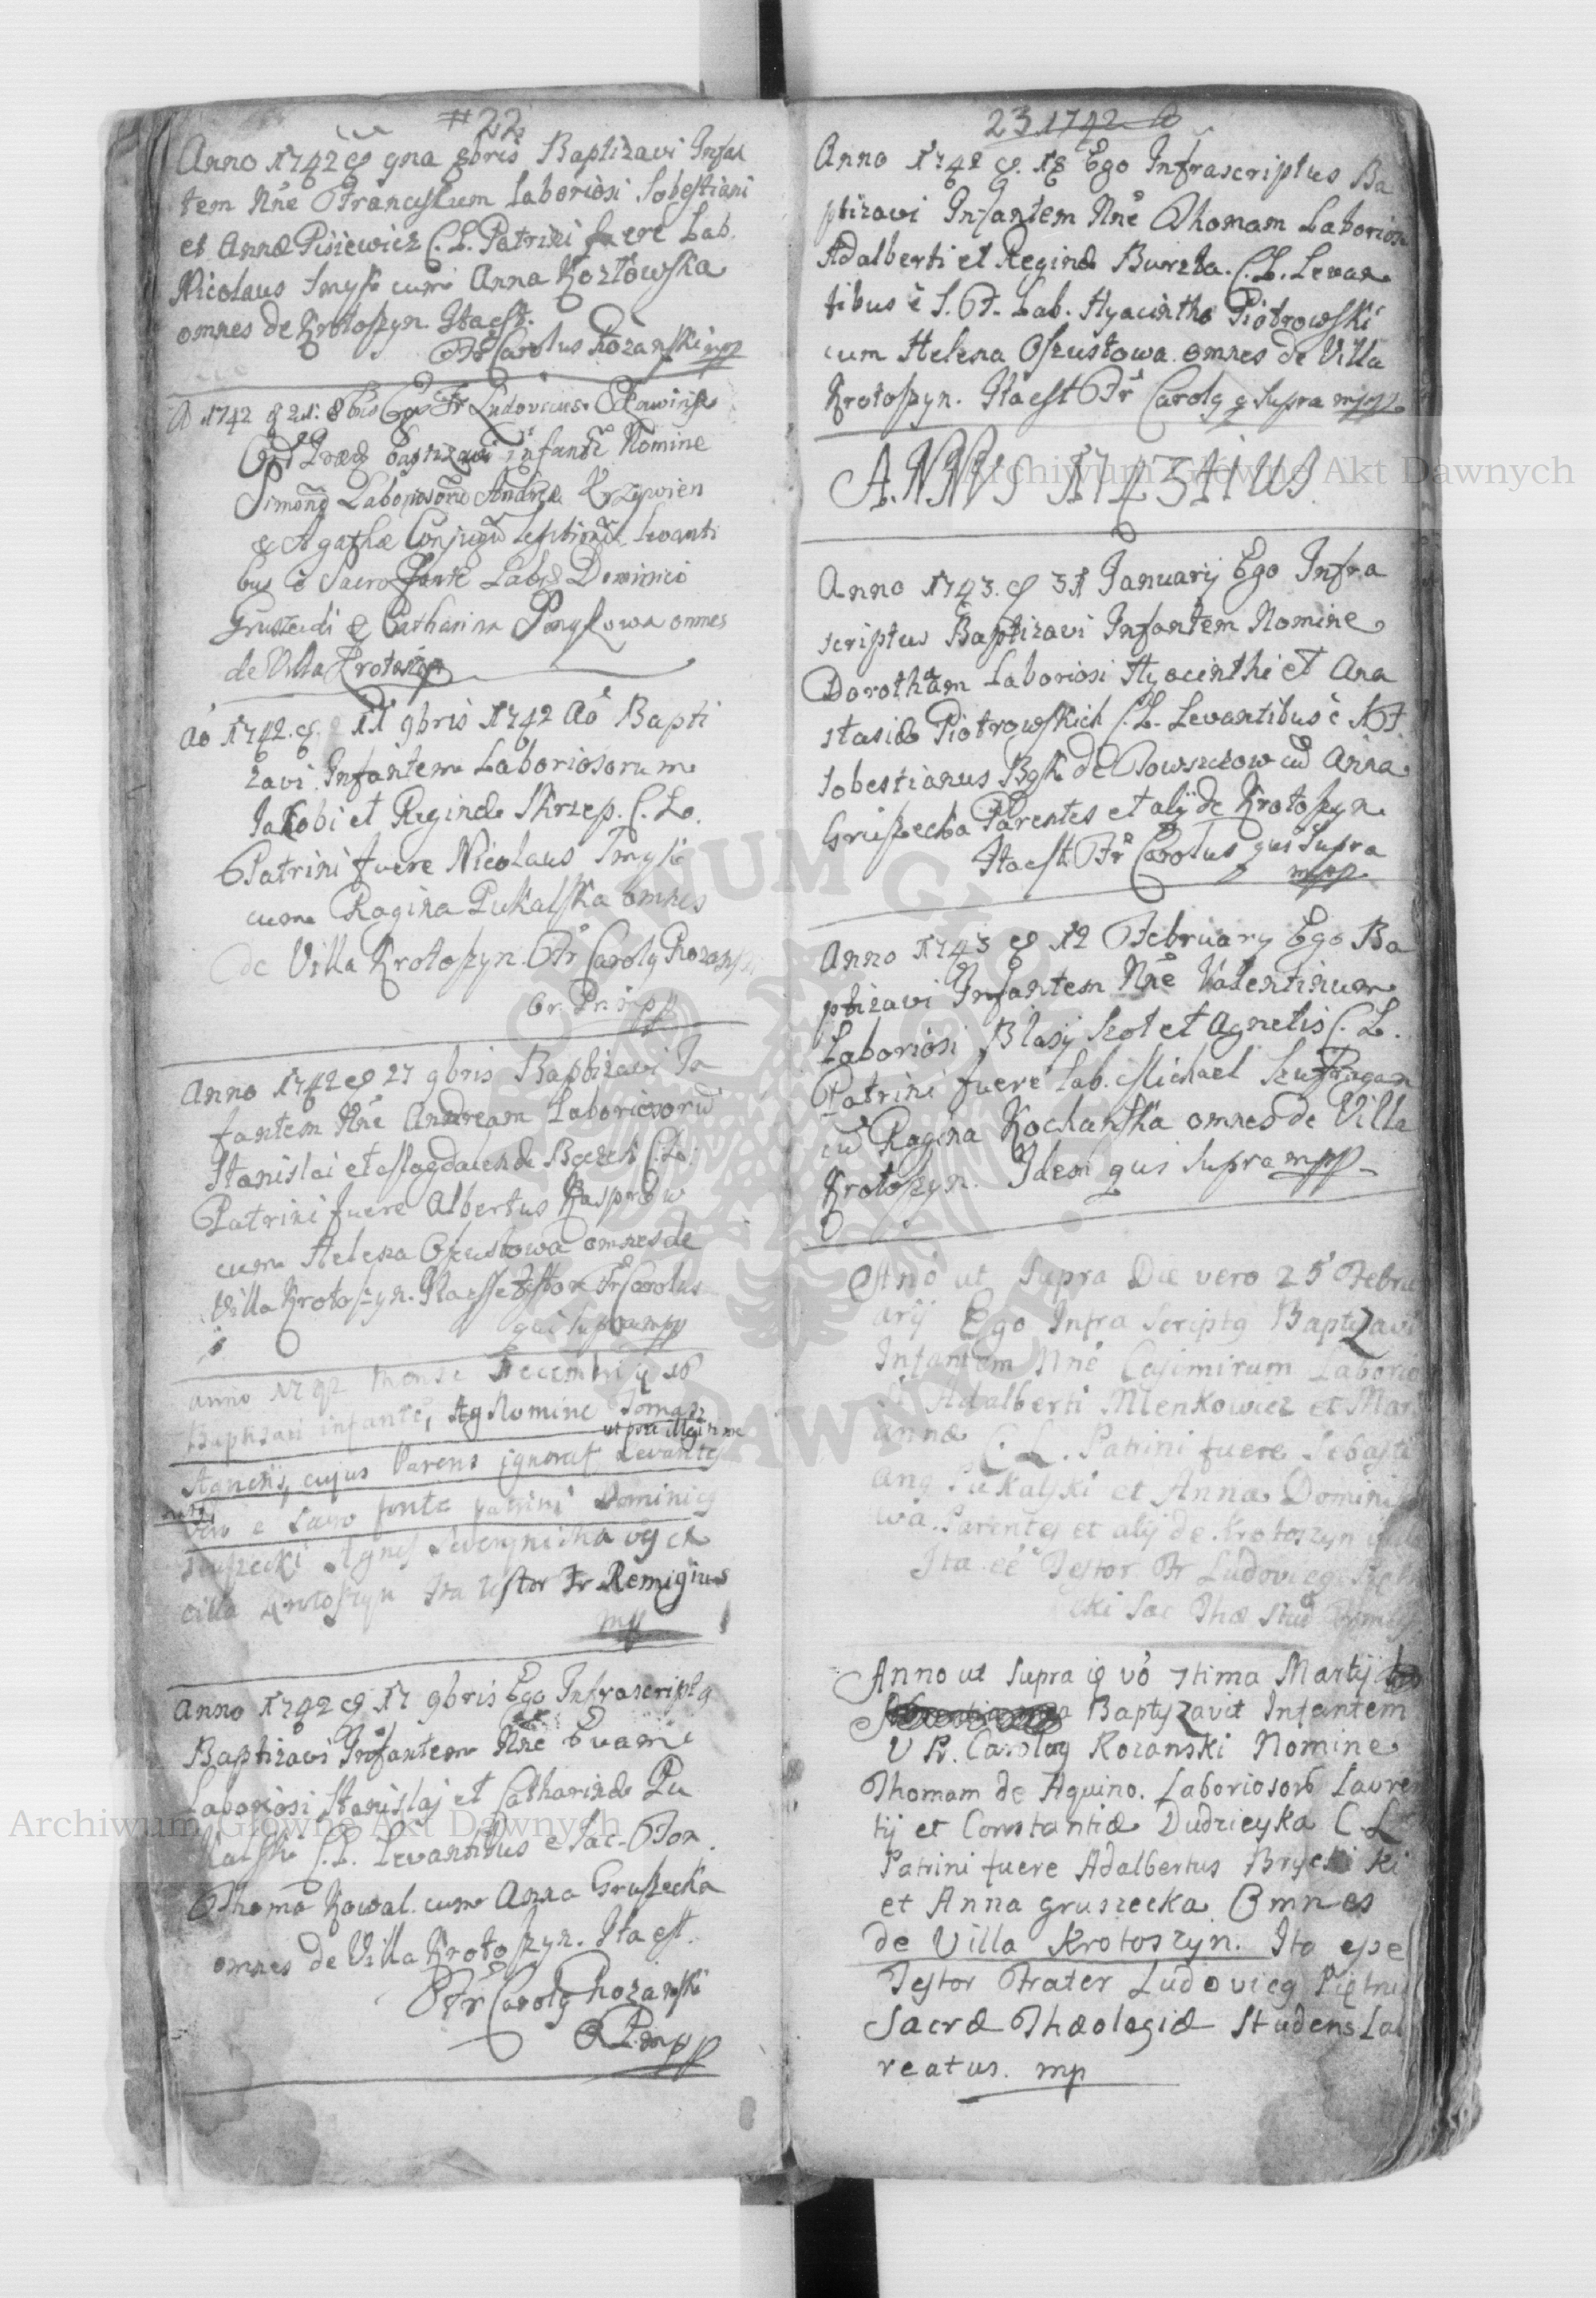 #22
Anno 1742 qna 8bris Baptizavi Infan
tem Nne Franciscum Laboriosi Sobestiani
et Annæ Pisiewicz C. L. Patrini fuere Lab.
Nicolaus Smyk cum Anna Kozłowska
omnes de Krotoszyn. Ita est.
Fr Carolus Rozanski mpp
A 1742 21. 8bis Ego Fr Ludovicus
Ord Præd baptizavi infante Nomine
Simone Laboriosoru Andreæ Krzywien
& Agathæ Conjugu Levanti
bus e Sacro fonte Lab Dominico
& Catharina omnes
de Villa Krotoszyn
Ao 1742. 11 9bris 1742 Ao Bapti
zavi Infantem Laboriosorum
Jakobi et Reginæ Skrzep. C. L.
Patrini fuere Nicolaus Smyk
cum Ragina Pukalska omnes
de Villa Krotoszyn Fr Carolg Rozansk
Or. Pr. mpp
Anno 1742 27 9bris Baptizavi In
fantem Nne Andream Laboriosoru
Stanislai et Magdalenæ C. L.
Patrini fuere Albertus Kasprow
cum Helena Oszustowa omnes de
Villa Krotoszyn. Ita esse Testor Fr Carolus
qui supra mpp
anno 1742 Mense Decembri 18
Baptizavi infante, Ag Nomine Tomasz
ut puta illegitime
Agnetis, cujus Parens ignorat Levantes
nata
vero e Sacro fonte patrini Dominicg
Gruszecki Agnes
villa Krotoszyn Ita testor Fr Remigius
mpp
Anno 1742 17 9bris Ego Infrascriptg
Baptizavi Infantem Nne Evam
Laboriosi Stanislaj et Catharinæ Pu
kalski C. L. Levantibus e Sac. Fon.
Thoma Kowal cum Anna Gruszecka
omnes de Villa Krotoszyn. Ita est.
Fr Carolg Rozanski
O P. mpp
23 1742
Anno 1742 18 Ego Infrascriptus Ba
ptizavi Infantem Nne Thomam Laborios
Adalberti et Reginæ Burzta. C. L. Levan
tibus e S. F. Lab. Hyacintho Piotrowski
cum Helena Oszustowa omnes de Villa
Krotoszyn. Ita est Fr Carolg q supra mpp
ANNUS 1743TIUS
Anno 1743. 31 Januarij Ego Infra
scriptus Baptizavi Infantem Nomine
Dorotham Laboriosi Hyacinthi et Ana
stasiæ Piotrowskich C. L. Levantibus e S F.
Sobestianus Bąk de cu Anna
Gruszecka Parentes et alij de Krotoszyn
Ita est Fr Carolus qui supra
mpp
Anno 1743 12 February Ego Ba
ptizavi Infantem Nne Valentinum
Laboriosi Blasij Szot et Agnetis C. L.
Patrini fuere Lab. Michael
cu Ragina Kochanska omnes de Villa
Krotoszyn. Idem qui supra mpp
Ano ut Supra Die vero 25 Febru
arij Ego Infra Scriptg Baptyzavi
Infantem Nne Casimirum Laborio
si Adalberti Mlenkowicz et Mari
annæ C. L. Patrini fuere Sebasti
ang Pukalski et Anna Domini
wa. Parentes et alij de Krotoszyn
Ita ee Testor Fr Ludovicg
cki Sac Thæ Stud
Anno ut Supra vo 7tima Martij
Baptyzavit Infantem
V P. Carolg Rozanski Nomine
Thomam de Aquino. Laboriosoru Lauren
tij et Constantiæ Dudzieyka C. L
Patrini fuere Adalbertus
et Anna gruszecka Omnes
de Villa Krotoszyn. Ita esse
Testor Frater Ludovicg
Sacræ Thæologiæ Studens Lau
reatus. mp
Archiwum Główne Akt Dawnych
Archiwum Główne Akt Dawnych
ARCHIWUM GŁÓWNE AKT DAWNYCH